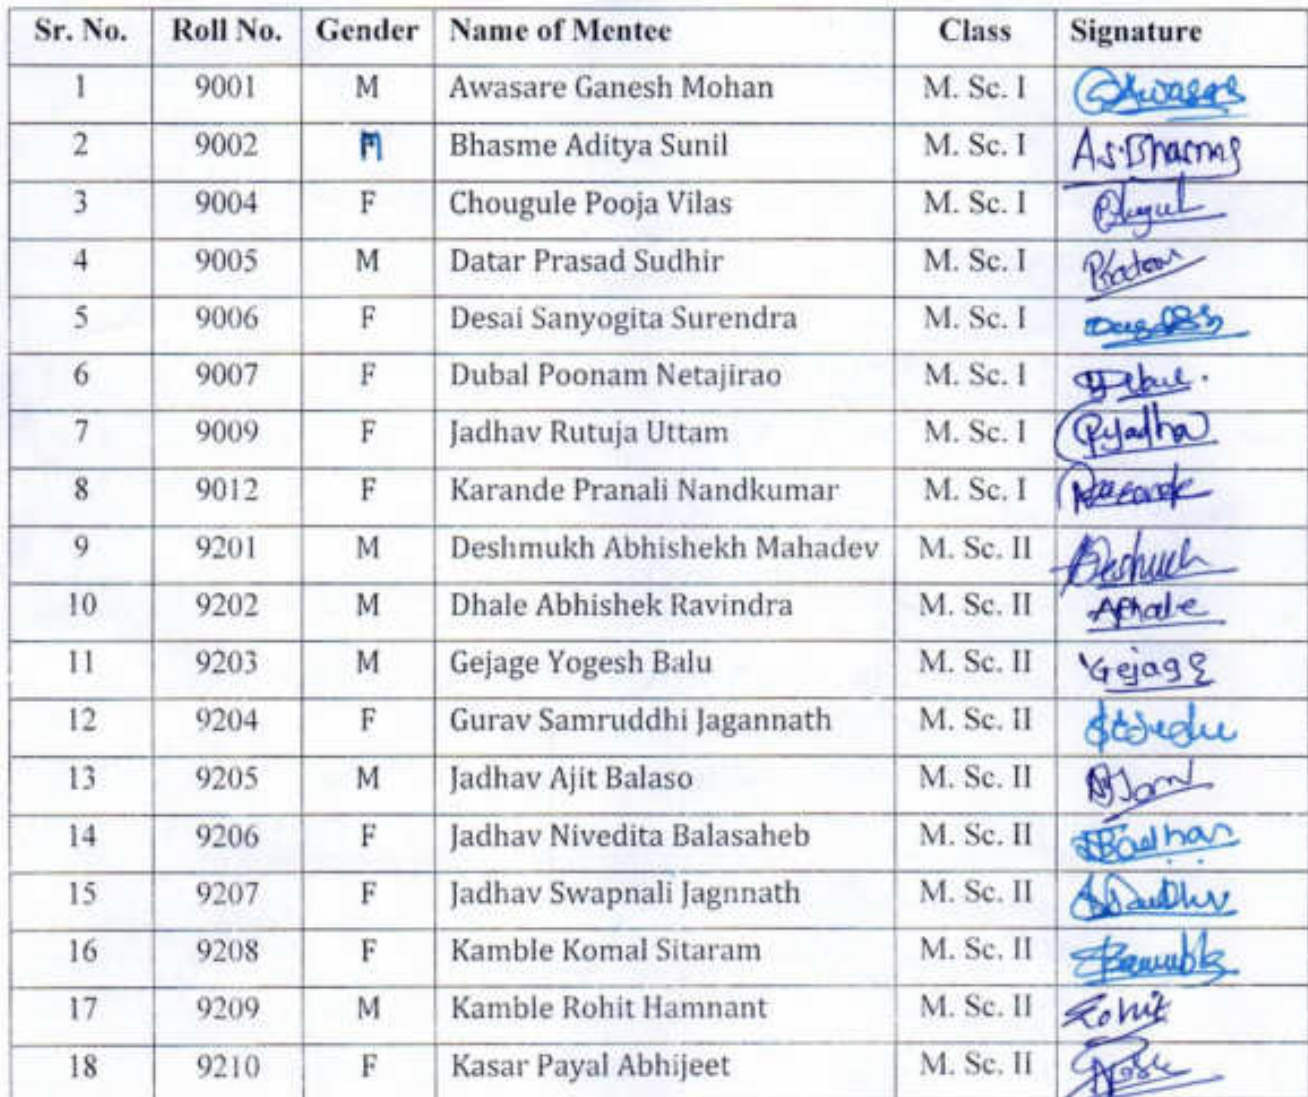 Sr. No. Roll No. Gender Name of Mentee Class Signature
1 9001 M Awasare Ganesh Mohan M. Sc. I
2 9002 M Bhasme Aditya Sunil M. Sc. I A.S.Bhasme
3 9004 F Chougule Pooja Vilas M. Sc. I
4 9005 M Datar Prasad Sudhir M. Sc. I
5 9006 F Desai Sanyogita Surendra M. Sc. I
6 9007 F Dubal Poonam Netajirao M. Sc. I
7 9009 F Jadhav Rutuja Uttam M. Sc. I
8 9012 F Karande Pranali Nandkumar M. Sc. I
9 9201 M Deshmukh Abhishekh Mahadev M. Sc. II
10 9202 M Dhale Abhishek Ravindra M. Sc. II
11 9203 M Gejage Yogesh Balu M. Sc. II YGejage
12 9204 F Gurav Samruddhi Jagannath M. Sc. II
13 9205 M Jadhav Ajit Balaso M. Sc. II
14 9206 F Jadhav Nivedita Balasaheb M. Sc. II
15 9207 F Jadhav Swapnali Jagnnath M. Sc. II
16 9208 F Kamble Komal Sitaram M. Sc. II
17 9209 M Kamble Rohit Hamnant M. Sc. II Rohit
18 9210 F Kasar Payal Abhijeet M. Sc. II